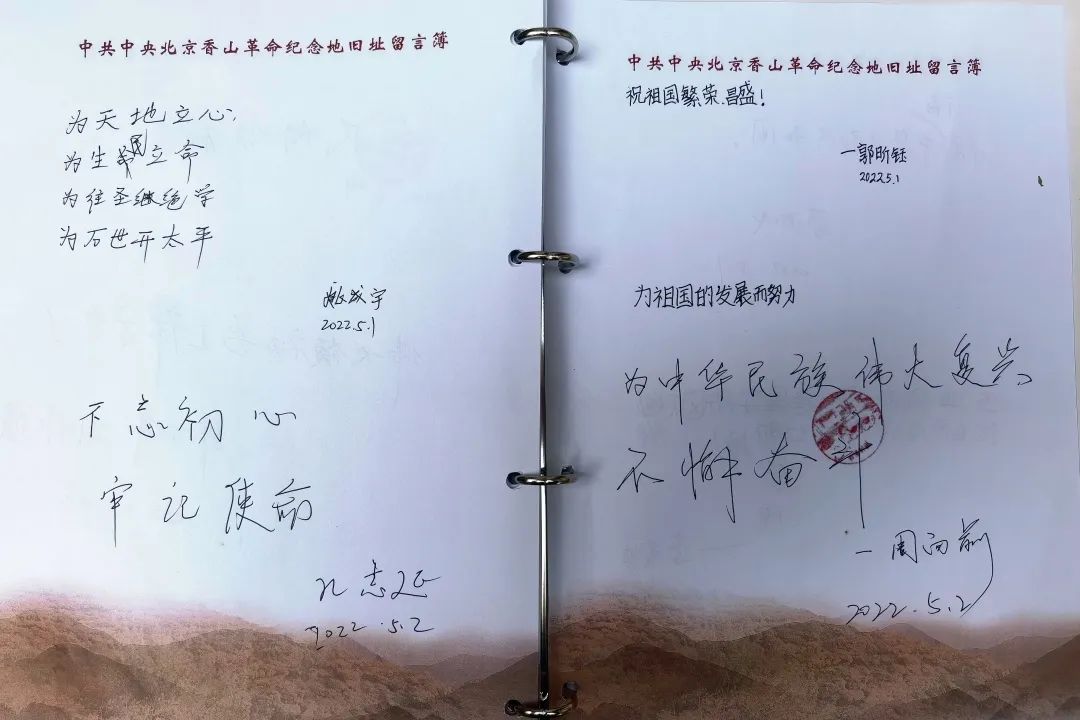 中共中央北京香山革命纪念地旧址留言簿
为天地立心,
为生民立命
为往圣继绝学
为万世开太平
成宇
2022.5.1
不忘初心
牢记使命
孔志延
2022.5.2
中共中央北京香山革命纪念地旧址留言簿
祝祖国繁荣.昌盛!
—郭昕钰
2022.5.1
为祖国的发展而努力
为中华民族伟大复兴
不懈奋斗
—周向前
2022.5.2